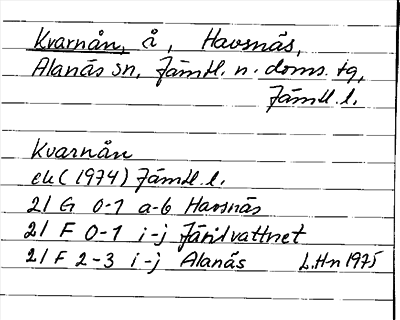 Kvarnån, å, Havsnäs,
Alanäs sn, Jämtl. n. doms. tg,
Jämtl. l.
Kvarnån
ek (1974) Jämtl. l.
21 G 0-1 a-b Havsnäs
21 F 0-1 i-j Järilvattnet
21 F 2-3 i-j Alanäs L.Hn 1975